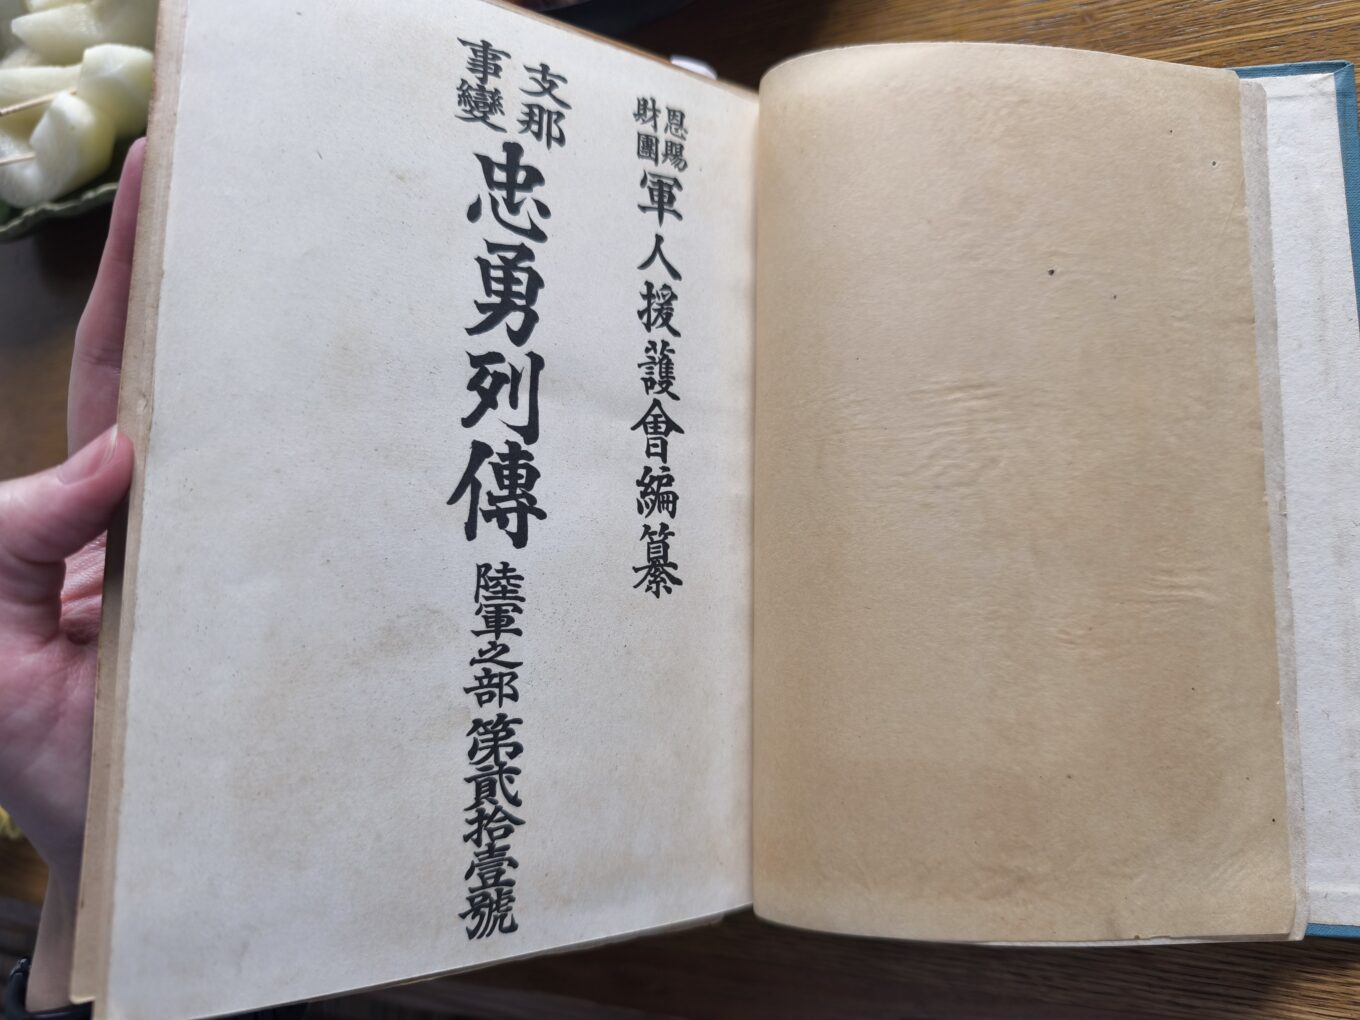 恩賜財團軍人援護會編纂
支那事變忠勇列傳陸軍之部第貳拾壹號